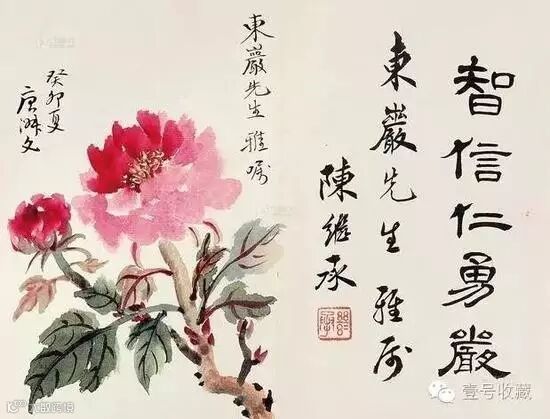 智信仁勇嚴
東巖先生雅屬
陳繼承
東巖先生雅嘱
癸卯夏
唐淑文
壹号收藏